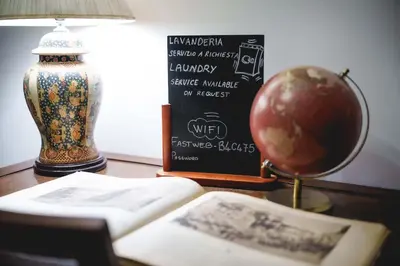 LAVANDERIA
SERVIZIO A RICHIESTA
LAUNDRY
SERVICE AVAILABLE
ON REQUEST
WIFI
FASTWEB-B4C475
PASSWORD